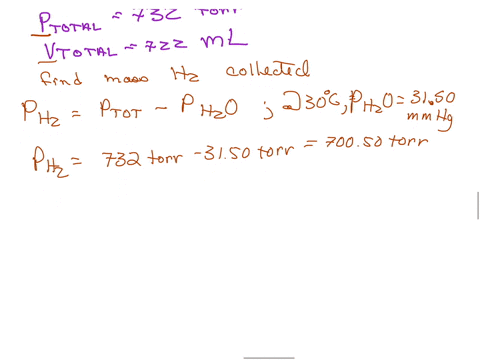 PTOTAL = 732 torr
VTOTAL = 722 mL
find mass H2 collected
PH2 = PTOT - PH2O ; @ 30°C, PH2O = 31.50 mm Hg
PH2 = 732 torr - 31.50 torr = 700.50 torr